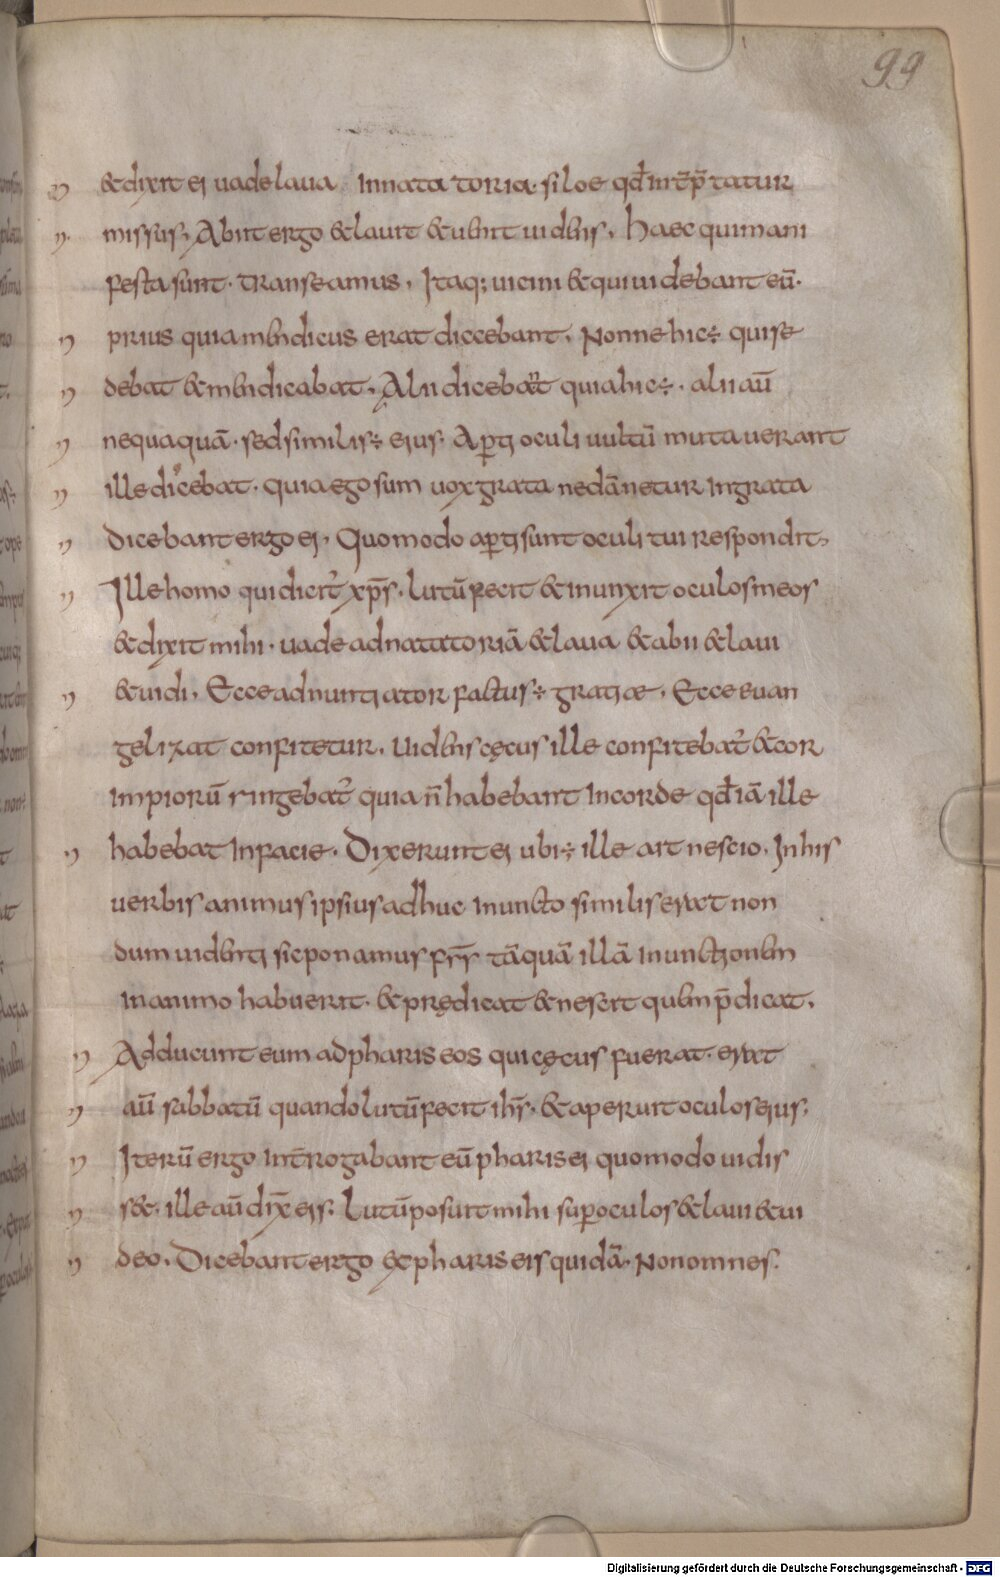 99
&dixit ei uade laua Innatatoria siloe qđ int̄p̄tatur
missus; Abiit ergo &lauit &uenit uidens. Haec quia mani
festa sunt. transeamus. Itaq; uicini &qui uidebant eū.
prius quia mendicus erat dicebant. Nonne hic ÷ qui se
debat &mendicabat. Alii dicebant quia hic ÷. alii aū
nequaquā. sed similis ÷ eius. Aperti oculi uultū mutauerant
ille dicebat. quia ego sum uox grata ne dānetur Ingrata
dicebant ergo ei. Quomodo aperti sunt oculi tui Respondit.
Ille homo qui dicit̄ xp̄s. lutū fecit &inunxit oculos meos
&dixit mihi. uade ad natatoriā &laua &abii &laui
&uidi. Ecce adnuntiator factus ÷ gratiae. Ecce euan
gelizat confitetur. Uidens cęcus ille confitebat̄ &cor
impiorū ringebat̄ quia n̄ habebant Incorde qđ iā ille
habebat Infacie. Dixerunt ei ubi ÷ ille ait nescio. In his
uerbis animus ipsius adhuc inuncto similis erat non
dum uidenti sic ponamus fr̄s tāquā illā inunctionem
inanimo habuerit. &prędicat &nescit quem p̄dicat.
Adducunt eum adphariseos qui cęcus fuerat. erat
aū sabbatū quando lutū fecit ih̄s. &aperuit oculos eius;
Iterū ergo Int̄rogabant eū pharisei quomodo uidis
s&. ille aū dix̄ eis; Lutū posuit mihi sup̱ oculos &laui &ui
deo. Dicebant ergo exphariseis quidā. Non omnes.
Digitalisierung gefördert durch die Deutsche Forschungsgemeinschaft - DFG